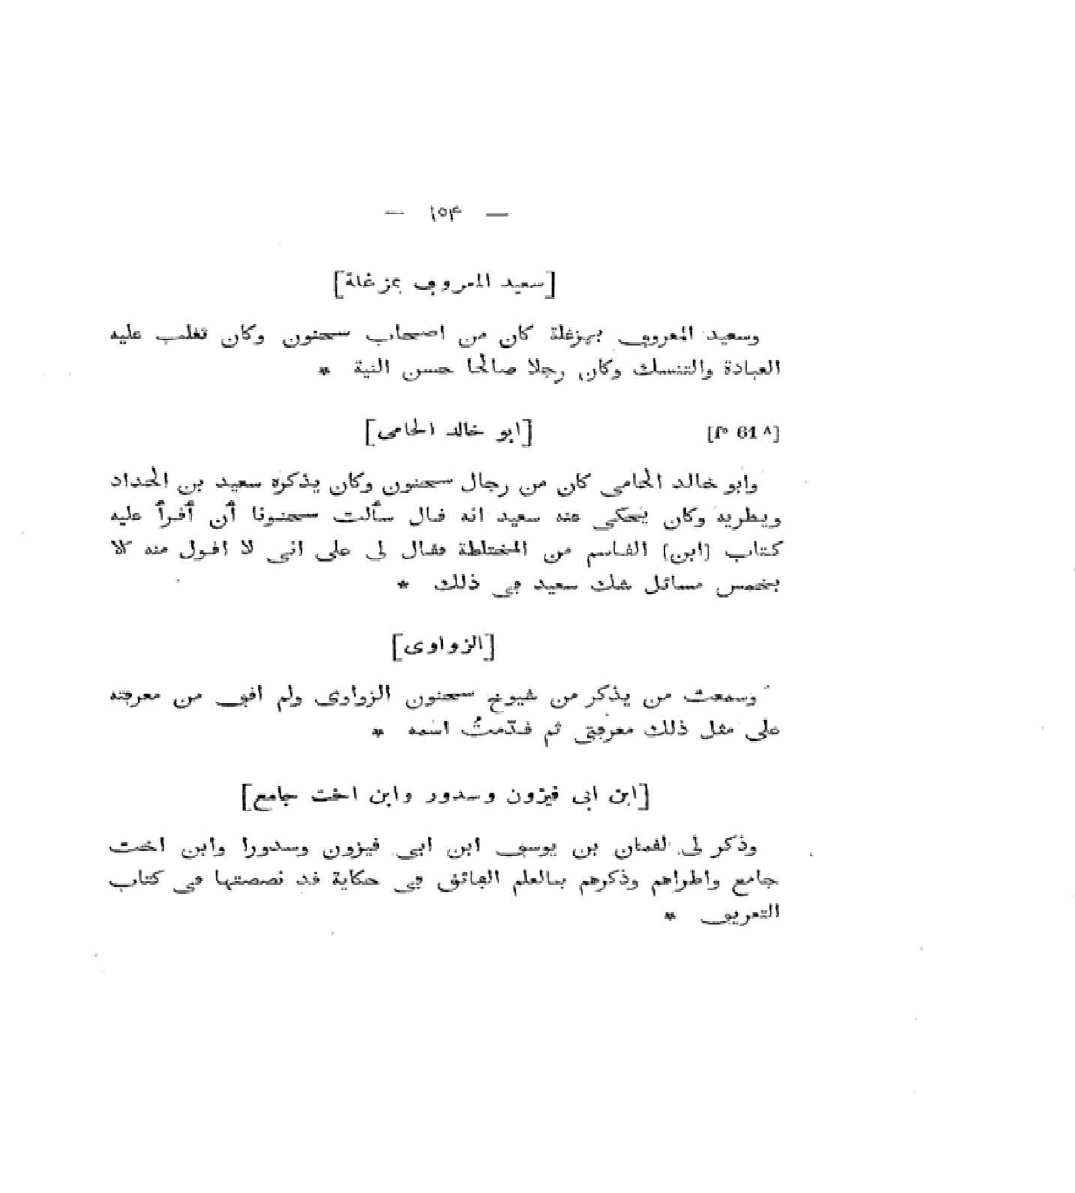 — ١٥٤ —
[سعيد المعروف بمزغلة]
وسعيد المعروف بمزغلة كان من اصحاب سحنون وكان تغلب عليه
العبادة والتنسك وكان رجلا صالحا حسن النية *
[ابو خالد الحامى] [fº 61 A]
وابو خالد الحامى كان من رجال سحنون وكان يذكره سعيد بن الحداد
ويطريه وكان يحكى عنه سعيد انه قال سألت سحنونا أن أقرأ عليه
كتاب [ابن] القاسم من المختلطة فقال لى على انى لا اقول منه كلا
بخمس مسائل شك سعيد فى ذلك *
[الزواوى]
وسمعت من يذكر من شيوخ سحنون الزواوى ولم اقف من معرفته
على مثل ذلك معرفتى ثم قدّمتُ اسمه *
[ابن ابى فيزون وسدور وابن اخت جامع]
وذكر لى لقمان بن يوسف ابن ابى فيزون وسدورا وابن اخت
جامع واطراهم وذكرهم بالعلم الفائق فى حكاية قد نصصتها فى كتاب
التعريف *